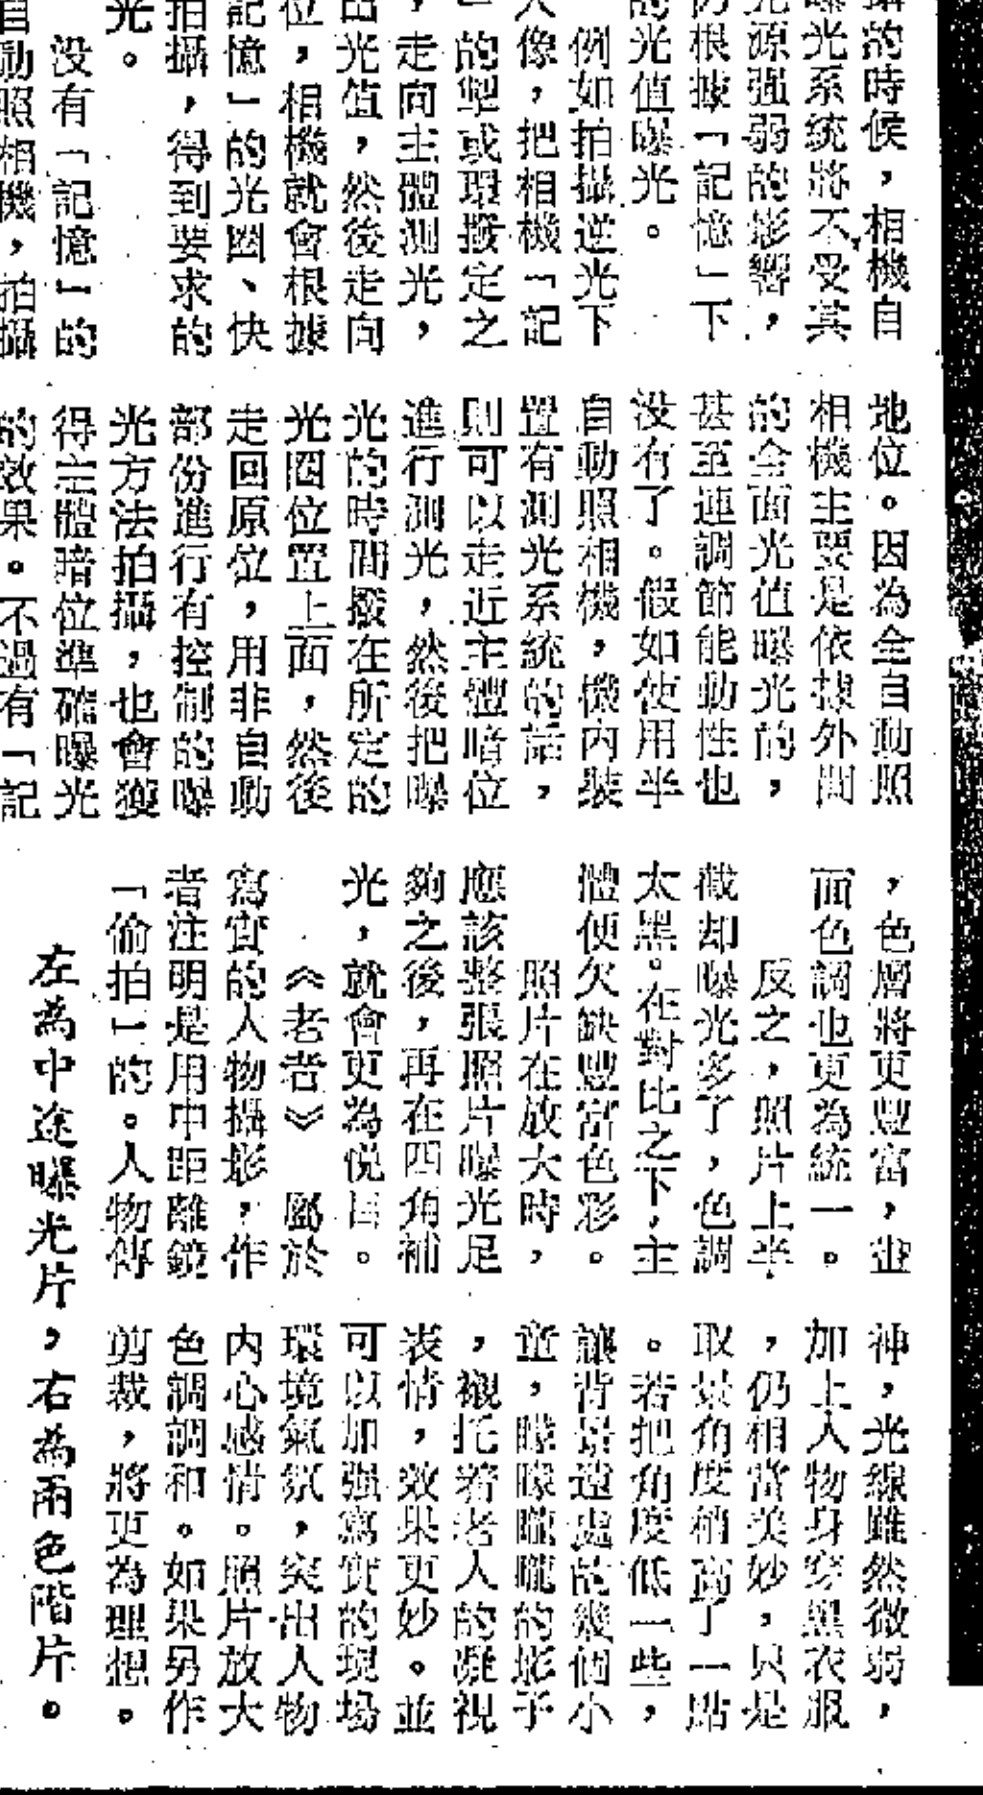 的時候，相機自
曝光系統將不受其
光源强弱的影響，
仍根據「記憶」下
的光值曝光。
例如拍攝逆光下
人像，把相機「記
的掣或環撥定之
，走向主體測光，
出光值，然後走向
位，相機就會根據
記憶」的光圈、快
拍攝，得到要求的
光。
没有「記憶」的
自動照相機，拍攝
地位。因為全自動照
相機主要是依據外間
的全面光值曝光的，
甚至連調節能動性也
没有了。假如使用半
自動照相機，機内裝
置有測光系統的話，
則可以走近主體暗位
進行測光，然後把曝
光的時間撥在所定的
光圈位置上面，然後
走回原位，用非自動
部份進行有控制的曝
光方法拍攝，也會獲
得主體暗位準確曝光
的效果。不過有「記
，色層將更豐富，畫
面色調也更為統一。
反之，照片上半
截却曝光多了，色調
太黑。在對比之下，主
體便欠缺豐富色彩。
照片在放大時，
應該整張照片曝光足
夠之後，再在四角補
光，就會更為悦目。
《老者》　屬於
寫實的人物攝影，作
者注明是用中距離鏡
「偷拍」的。人物傳
神，光線雖然微弱，
加上人物身穿黑衣服
，仍相當美妙，只是
取景角度稍高了一點
。若把角度低一些，
讓背景遠處的幾個小
童，矇矇矓矓的影子
，襯托着老人的凝視
表情，效果更妙。並
可以加强寫實的現場
環境氣氛，突出人物
内心感情。照片放大
色調調和。如果另作
剪裁，將更為理想。
左為中途曝光片，右為兩色階片。